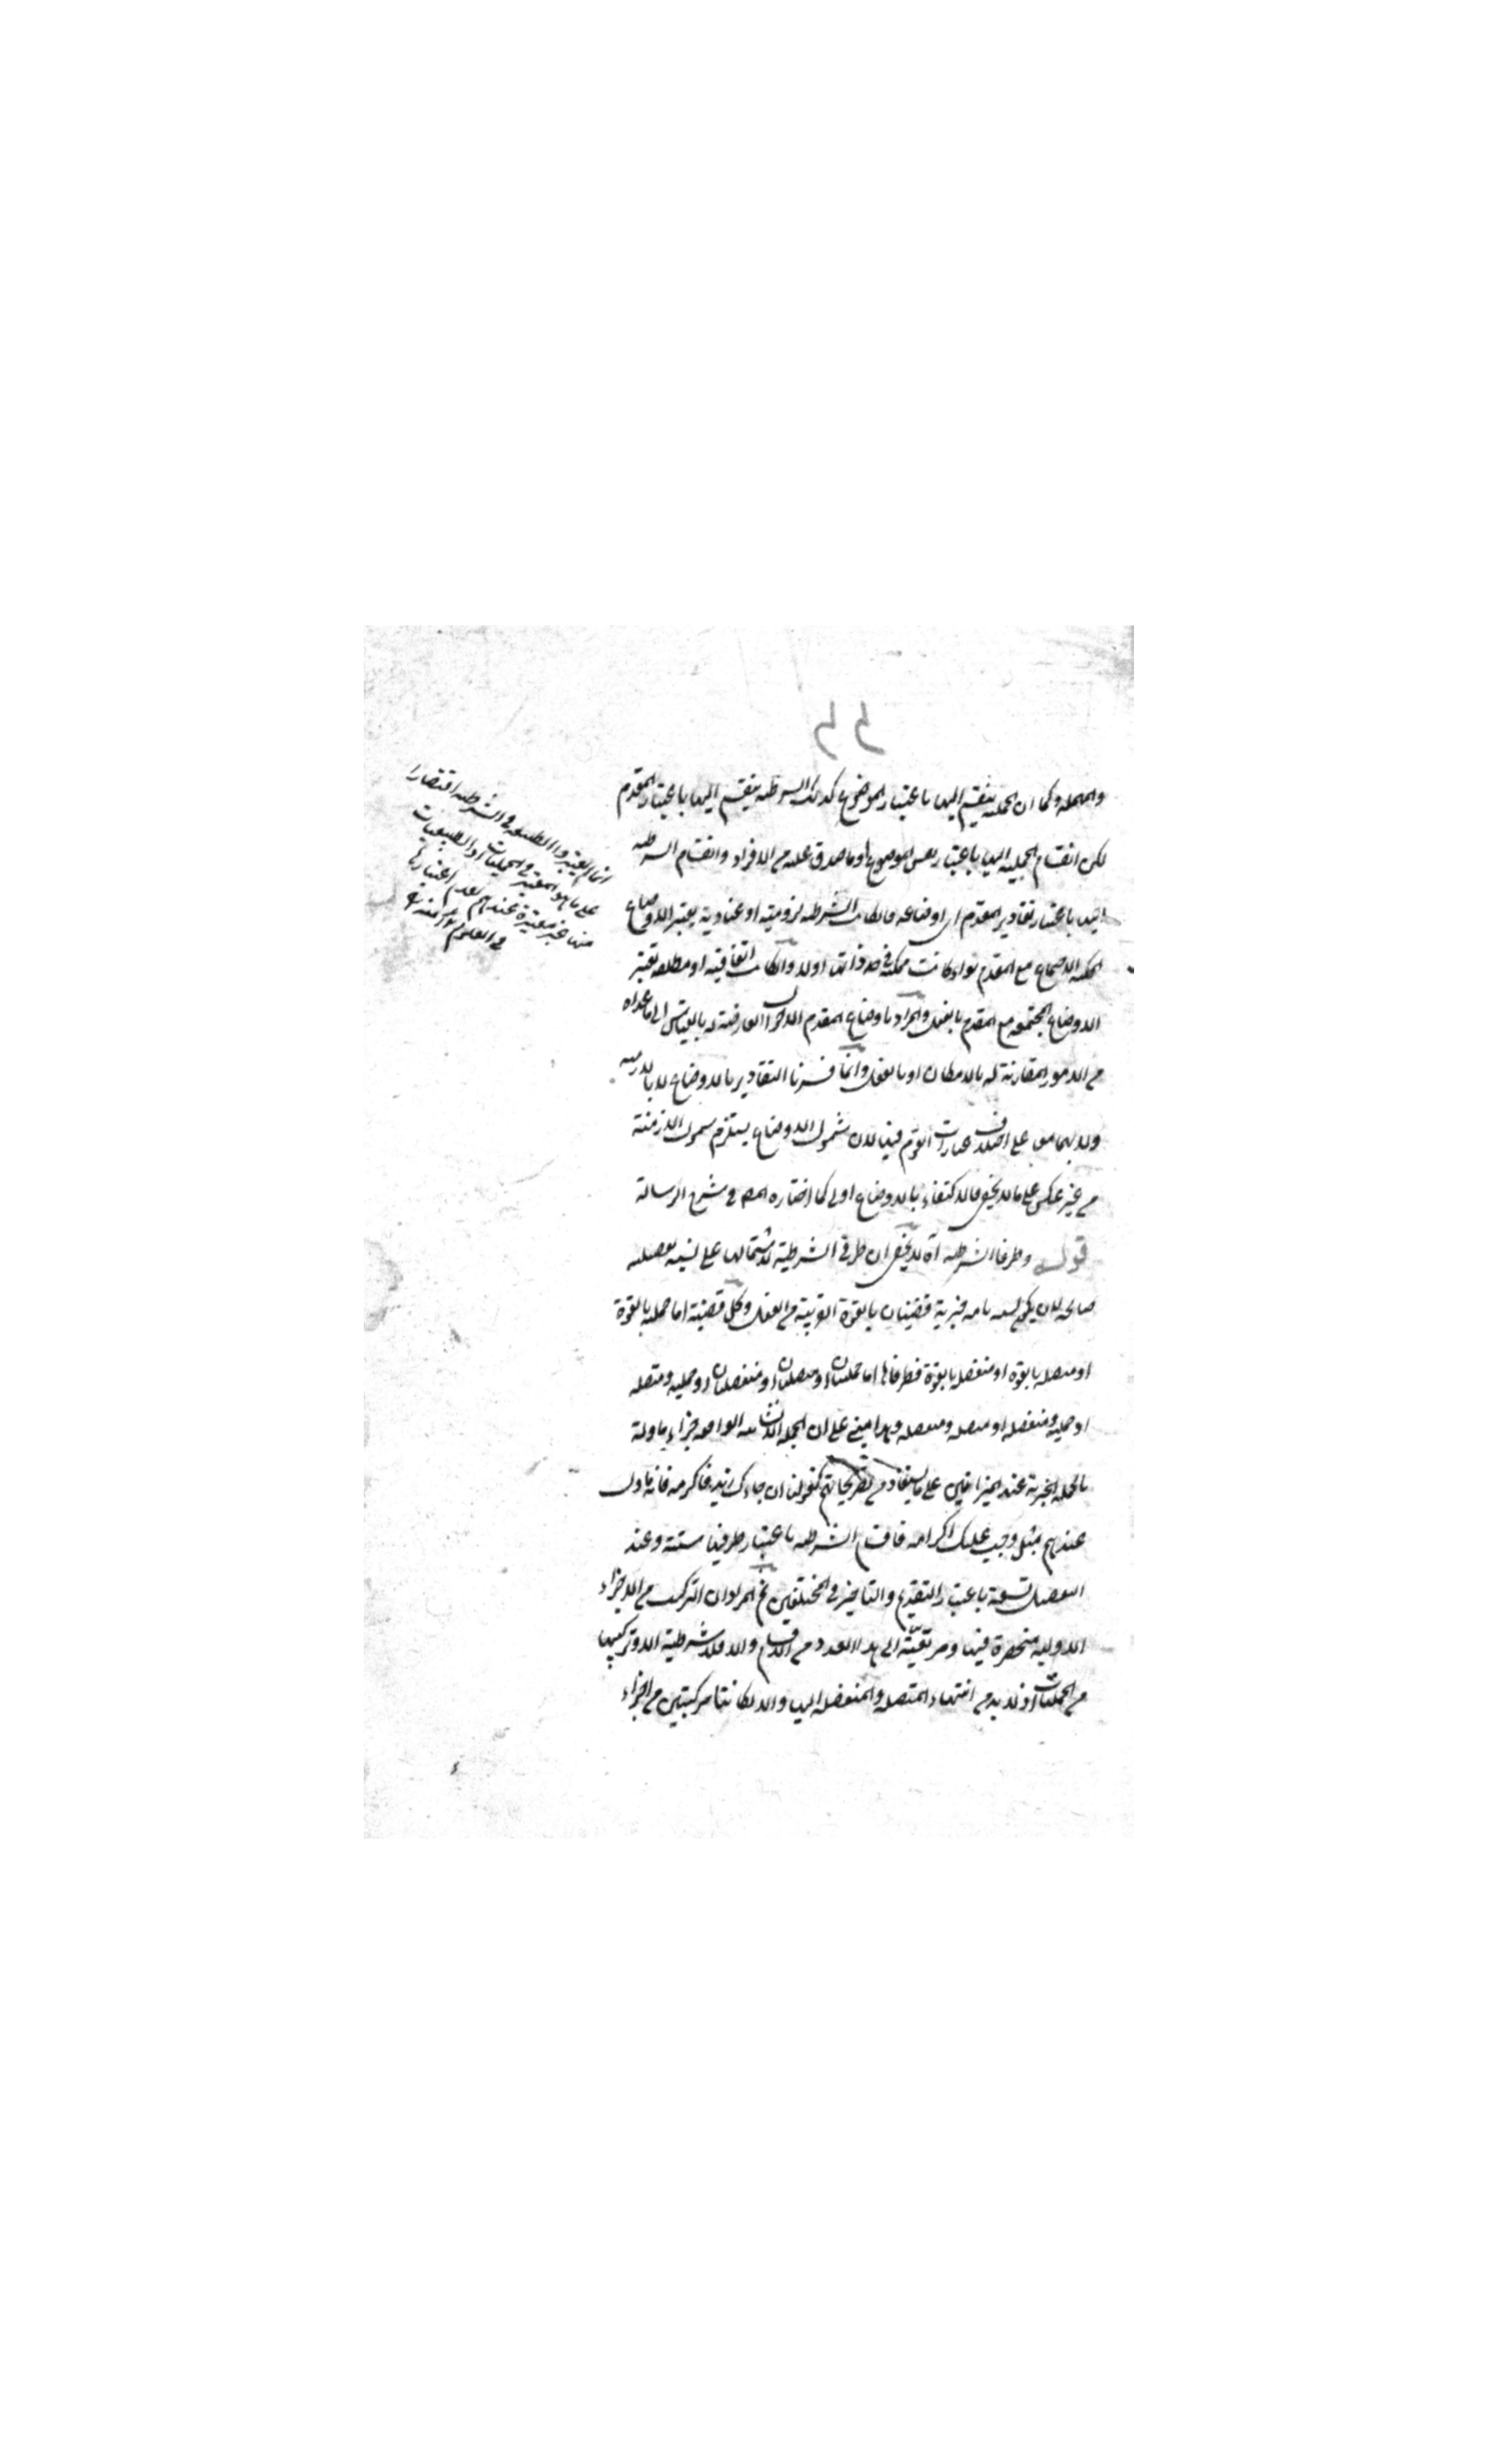 والمهملة وكما ان الحملية ينقسم اليها باعتبار الموضوع كذلك الشرطية ينقسم اليها باعتبار المقدم
لكن انقسام الحملية اليها باعتبار نفس الموضوع او ما صدق عليه من الافراد وانقسام الشرطية
اليها باعتبار تقادير المقدم اى اوضاعه فان كانت الشرطية لزومية او عنادية يعتبر الاوضاع
الممكنة الاجتماع مع المقدم سواء كانت ممكنة فى حد ذاتها اولا وان كانت اتفاقية او مطلقة تعتبر
الاوضاع المجتمعة مع المقدم بالفعل والمراد باوضاع المقدم الاحوال العارضة له بالقياس الى ما عداه
من الامور المقارنة له بالامكان او بالفعل وانما فسرنا التقادير بالاوضاع لا بالازمنة
ولا بهما معا على اختلاف عبارات القوم فيها لان شمول الاوضاع يستلزم شمول الازمنة
من غير عكس على ما لا يخفى فالاكتفاء بالاوضاع اولى كما اختاره المص فى شرح الرسالة
قوله وطرفا الشرطية آه لا يخفى ان طرفى الشرطية لاشتمالها على نسبة تفصيلية
صالحة لان يكون نسبة تامة خبرية قضيتان بالقوة القريبة من الفعل وكل قضية اما حملية بالقوة
او متصلة بالقوة او منفصلة بالقوة فطرفاها اما حمليتان او متصلتان او منفصلتان او حملية ومتصلة
او حملية ومنفصلة او متصلة ومنفصلة وهذا مبنى على ان الجملة الانشائية الواقعة جزاء ماولة
بالجملة الخبرية عند الميزانيين على ما يستفاد من تصريحاتهم كقولنا ان جاءك زيد فاكرمه فانه ماول
عندهم بمثل وجب عليك اكرامه فاقسام الشرطية باعتبار طرفيها ستة وعند
التفصيل تسعة باعتبار التقديم والتاخير فى المختلفين ثم المراد ان التركيب من الاجزاء
الاولية منحصرة فيها ومرتقية الى هذا العدد من الاقسام والا فلا شرطية الا وتركيبها
من الحمليات اذ لا بد من انتهاء المتصلة والمنفصلة اليها والا لكانتا مركبتين من اجزاء
انما لم يعتبروا الطبيعية فى الشرطية اقتصارا
على ما هو المعتبر فى الحمليات اذ الطبيعيات
منها غير معتبرة عندهم لعدم اعتبارها
فى العلوم منه